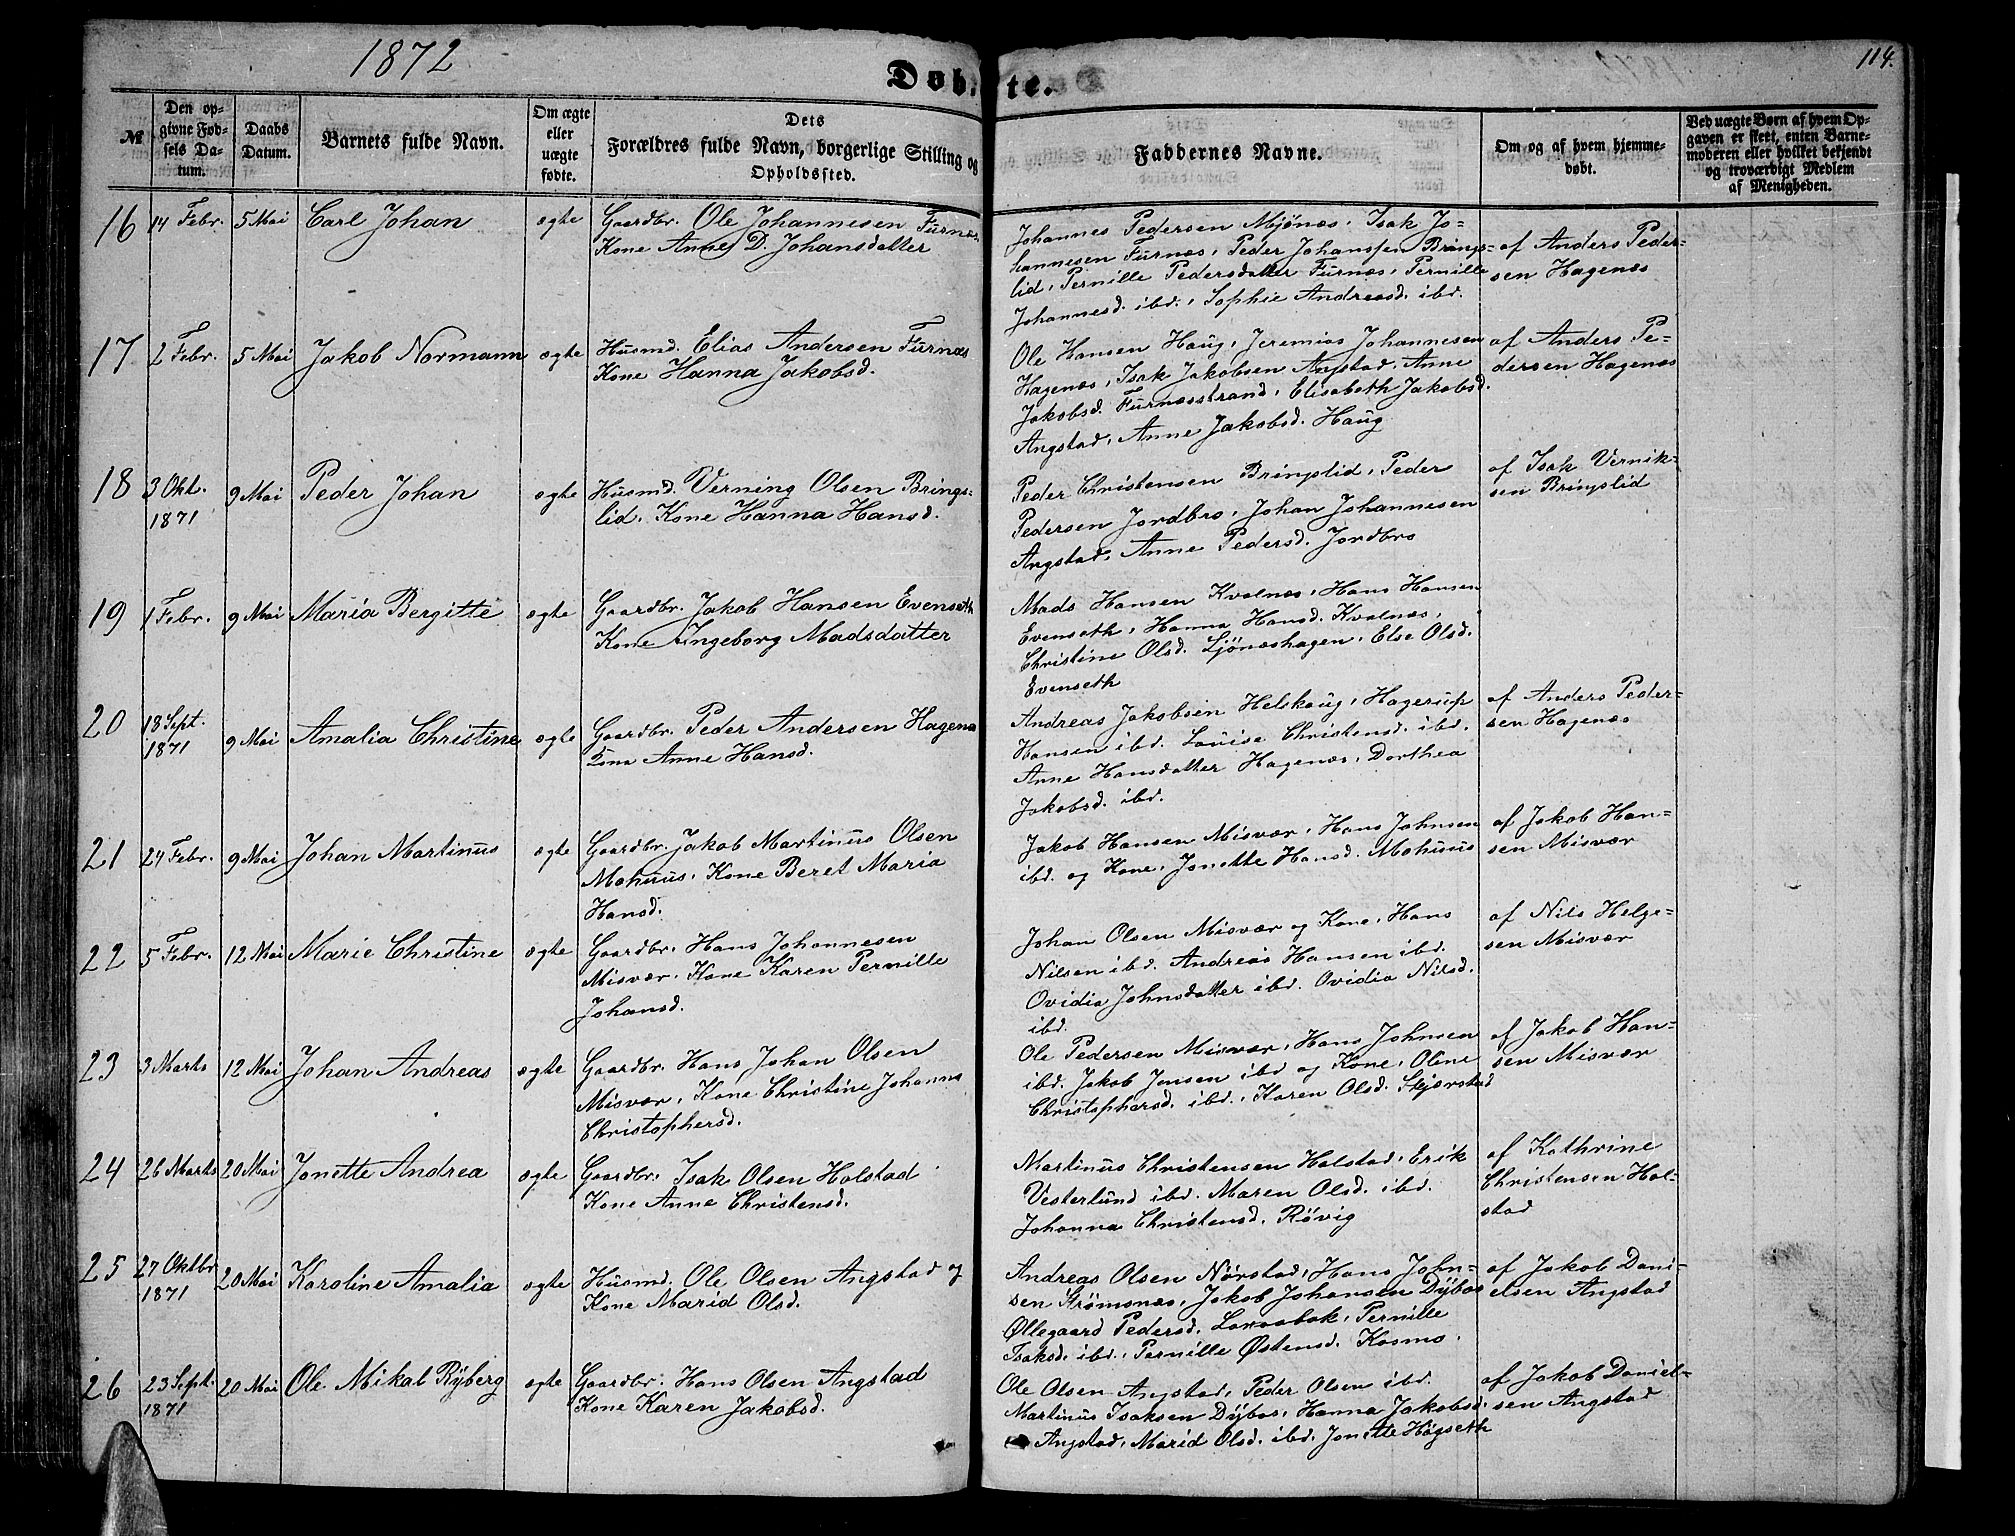 1872
Døbte.
114.
№
Den opgivne Fødsels Datum.
Daabs Datum.
Barnets fulde Navn.
Om ægte eller uægte fødte.
Dets
Forældres fulde Navn, borgerlige Stilling og
Opholdssted.
Faddernes Navne.
Om og af hvem hjemmedøbt.
Ved uægte Børn af hvem Opgaven er skett, enten Barnemoderen eller hvilket bekjendt og troværdigt Medlem af Menigheden.
16 14 Febr. 5 Mai Carl Johan ægte
Gaardbr. Ole Johannesen Furnæs.
Kone Anne D. Johansdatter
Johannes Pedersen Mjönæs, Isak Jo-
hannesen Furnæs, Peder Johansen Brings-
lid, Pernille Pedersdatter Furnæs, Pernille
Johannesd. ibd., Sophie Andreasd. ibd.
af Anders Peder-
sen Hagenæs
17 2 Febr. 5 Mai Jakob Normann ægte
Husmd. Elias Andersen Furnæs
Kone Hanna Jakobsd.
Ole Hansen Haug, Jeremias Johannesen
Hagenæs, Isak Jakobsen Angstad, Anne
Jakobsd. Furnæsstrand, Elisabeth Jakobsd.
Angstad, Anne Jakobsd. Haug
af Anders Pe-
dersen Hagenæs
18 3 Okt. 1871 9 Mai Peder Johan ægte
Husmd. Verning Olsen Brings-
lid. Kone Hanna Hansd.
Peder Christensen Bringslid, Peder
Pedersen Jordbro, Johan Johannesen
Angstad, Anne Pedersd. Jordbro
af Isak Vernik-
sen Bringslid
19 1 Febr. 9 Mai Maria Bergitte ægte
Gaardbr. Jakob Hansen Evenseth
Kone Ingeborg Madsdatter
Mads Hansen Kvalnæs, Hans Hansen
Evenseth, Hanna Hansd. Kvalnæs,
Christine Olsd. Ljönæshagen, Else Olsd.
Evenseth
20 18 Sept. 1871 9 Mai Amalia Christine ægte
Gaardbr. Peder Andersen Hagenæ
Kone Anne Hansd.
Andreas Jakobsen Helskoug, Hagerup
Hansen ibd. Louise Christensd. ibd.
Anne Hansdatter Hagenæs, Dorthea
Jakobsd. ibd.
af Anders Peder-
sen Hagenæs
21 24 Febr. 9 Mai Johan Martinus ægte
Gaardbr. Jakob Martinus Olsen
Mohuus, Kone Beret Maria
Hansd.
Jakob Hansen Misvær, Hans Johnsen
ibd. og Kone, Jonette Hansd. Mohuus
af Jakob Han-
sen Misvær
22 5 Febr. 12 Mai Marie Christine ægte
Gaardbr. Hans Johannesen
Misvær, Kone Karen Pernille
Johansd.
Johan Olsen Misvær og Kone, Hans
Nilsen ibd. Andreas Hansen ibd.
Ovidia Johnsdatter ibd. Ovidia Nilsd.
ibd.
af Nils Helge-
sen Misvær
23 3 Marts 12 Mai Johan Andreas ægte
Gaardbr. Hans Johan Olsen
Misvær, Kone Christine Johanna
Christophersd.
Ole Pedersen Misvær, Hans Johnsen
ibd. Jakob Jensen ibd og Kone, Oline
Christophersd. ibd., Karen Olsd. Skjærstad
af Jakob Han-
sen Misvær
24 26 Marts 20 Mai Jonette Andrea ægte
Gaardbr. Isak Olsen Holstad
Kone Anne Christensd.
Martinus Christensen Holstad, Erik
Vesterlund ibd. Maren Olsd. ibd.
Johanna Christensd. Rövig
af Kathrine
Christensen Hol-
stad
25 27 Oktbr 1871 20 Mai Karoline Amalia ægte
Husmd. Ole Olsen Angstad og
Kone Marid Olsd.
Andreas Olsen Nörstad, Hans John-
sen Strömsnæs, Jakob Johansen Dybos
Øllegaard Pedersd. , Pernille
Isaksd. ibd., Pernille Østensd. Kosmo.
af Jakob Dani-
elsen Angstad
26 23 Sept. 1871 20 Mai Ole Mikal Ryberg ægte
Gaardbr. Hans Olsen Angstad
Kone Karen Jakobsd.
Ole Olsen Angstad, Peder Olsen ibd.
Martinus Isaksen Dybos, Hanna Jakobsd.
Angstad, Marid Olsd. ibd. Jonette Högseth
af Jakob Daniel-
sen Angstad